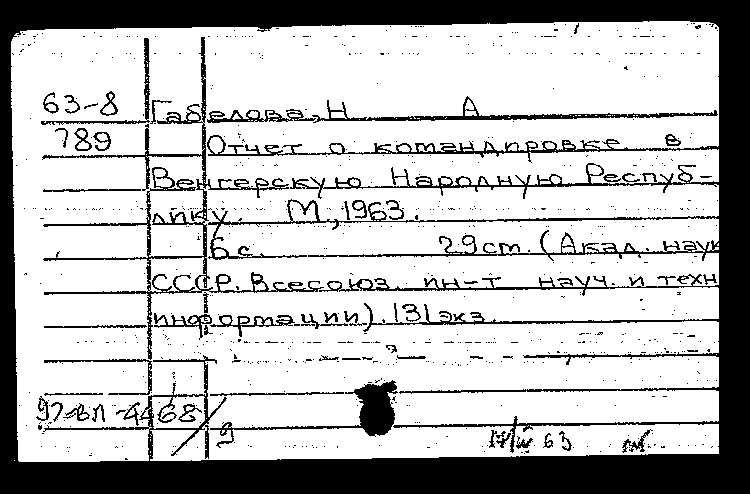 63-8 Габелова, Н А
789 Отчет о командировке в
Венгерскую Народную Респуб-
лику. М., 1963.
6 с. 29 см. (Акад. наук
СССР. Всесоюз. ин-т науч. и техн
информации). 131 экз.
97-ВЛ-4468/9
63